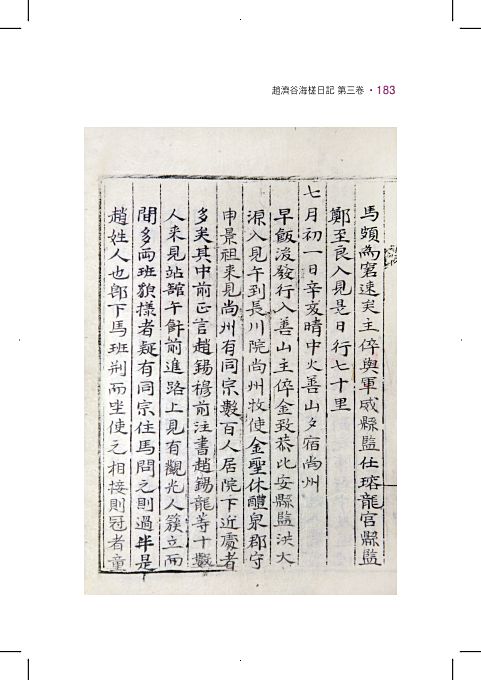 趙濟谷海槎日記 第三卷 · 183
馬頗爲窘速矣主倅與軍威縣監任瑢龍宮縣監
鄭至良入見是日行七十里
七月初一日辛亥晴中火善山夕宿尙州
早飯後發行入善山主倅金致恭比安縣監洪大
源入見午到長川院尙州牧使金聖休醴泉郡守
申景祖來見尙州有同宗數百人居院下近處者
多矣其中前正言趙錫穆前注書趙錫龍等十數
人來見站舘午飰前進路上見有觀光人簇立而
間多兩班貌樣者疑有同宗住馬問之則過半是
趙姓人也卽下馬班荆而坐使之相接則冠者童